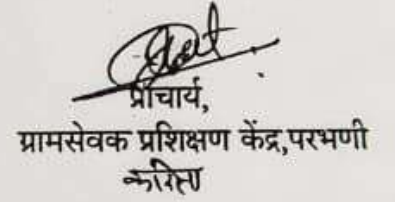 प्राचार्य,
ग्रामसेवक प्रशिक्षण केंद्र,परभणी
करिता